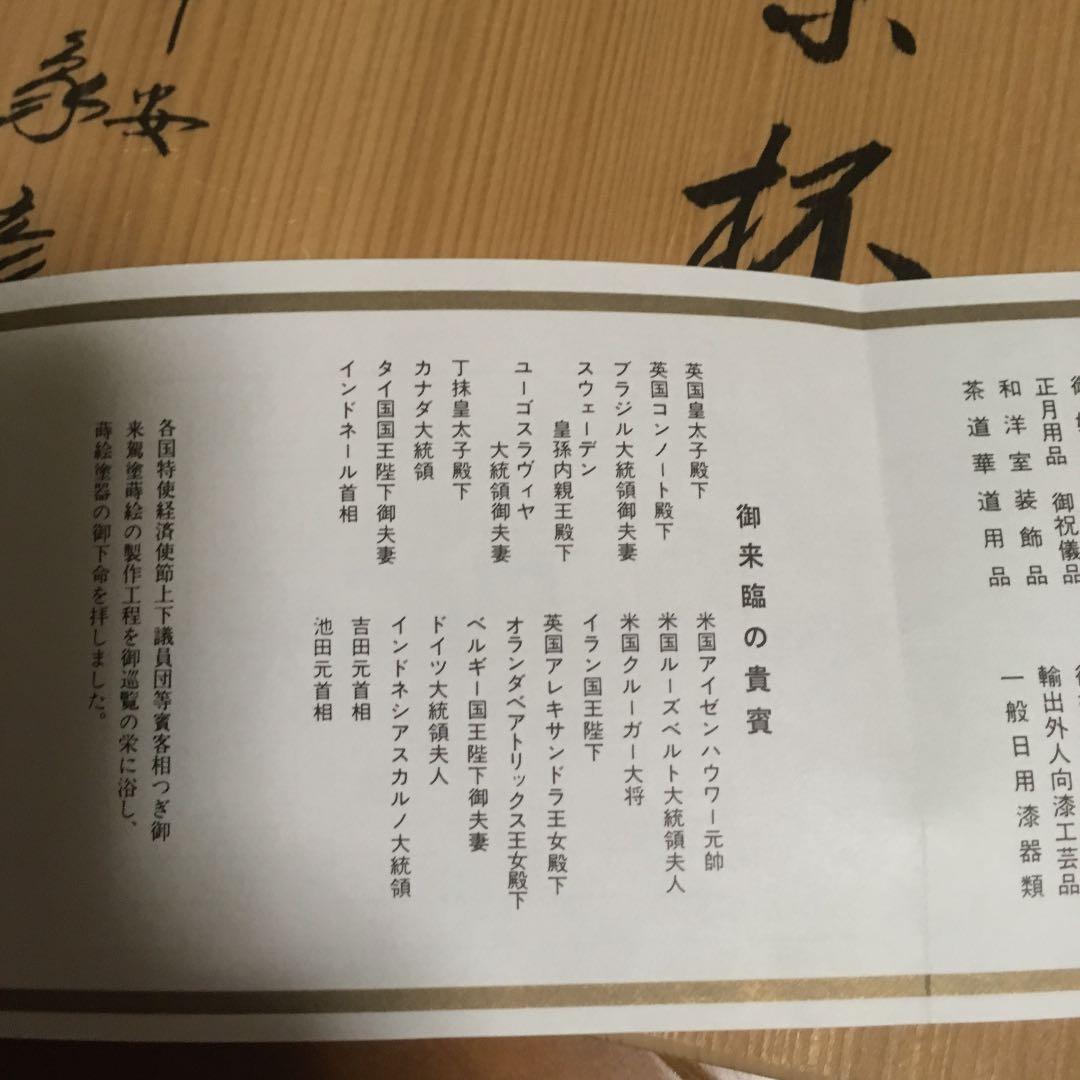 杯
家安
彦
正月用品　御祝儀品
和洋室装飾品
茶道華道用品
輸出外人向漆工芸品
一般日用漆器類
御来臨の貴賓
英国皇太子殿下
英国コンノート殿下
ブラジル大統領御夫妻
スウェーデン
皇孫内親王殿下
ユーゴスラヴィヤ
大統領御夫妻
丁抹皇太子殿下
カナダ大統領
タイ国国王陛下御夫妻
インドネール首相
米国アイゼンハウワー元帥
米国ルーズベルト大統領夫人
米国クルーガー大将
イラン国王陛下
英国アレキサンドラ王女殿下
オランダベアトリックス王女殿下
ベルギー国王陛下御夫妻
ドイツ大統領夫人
インドネシアスカルノ大統領
吉田元首相
池田元首相
各国特使経済使節上下議員団等賓客相つぎ御
来駕塗蒔絵の製作工程を御巡覧の栄に浴し、
蒔絵塗器の御下命を拝しました。